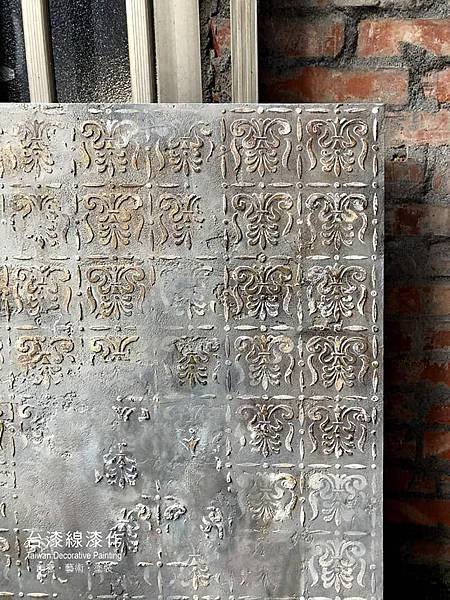 台漆線漆作
Taiwan Decorative Painting
藝術
塗裝